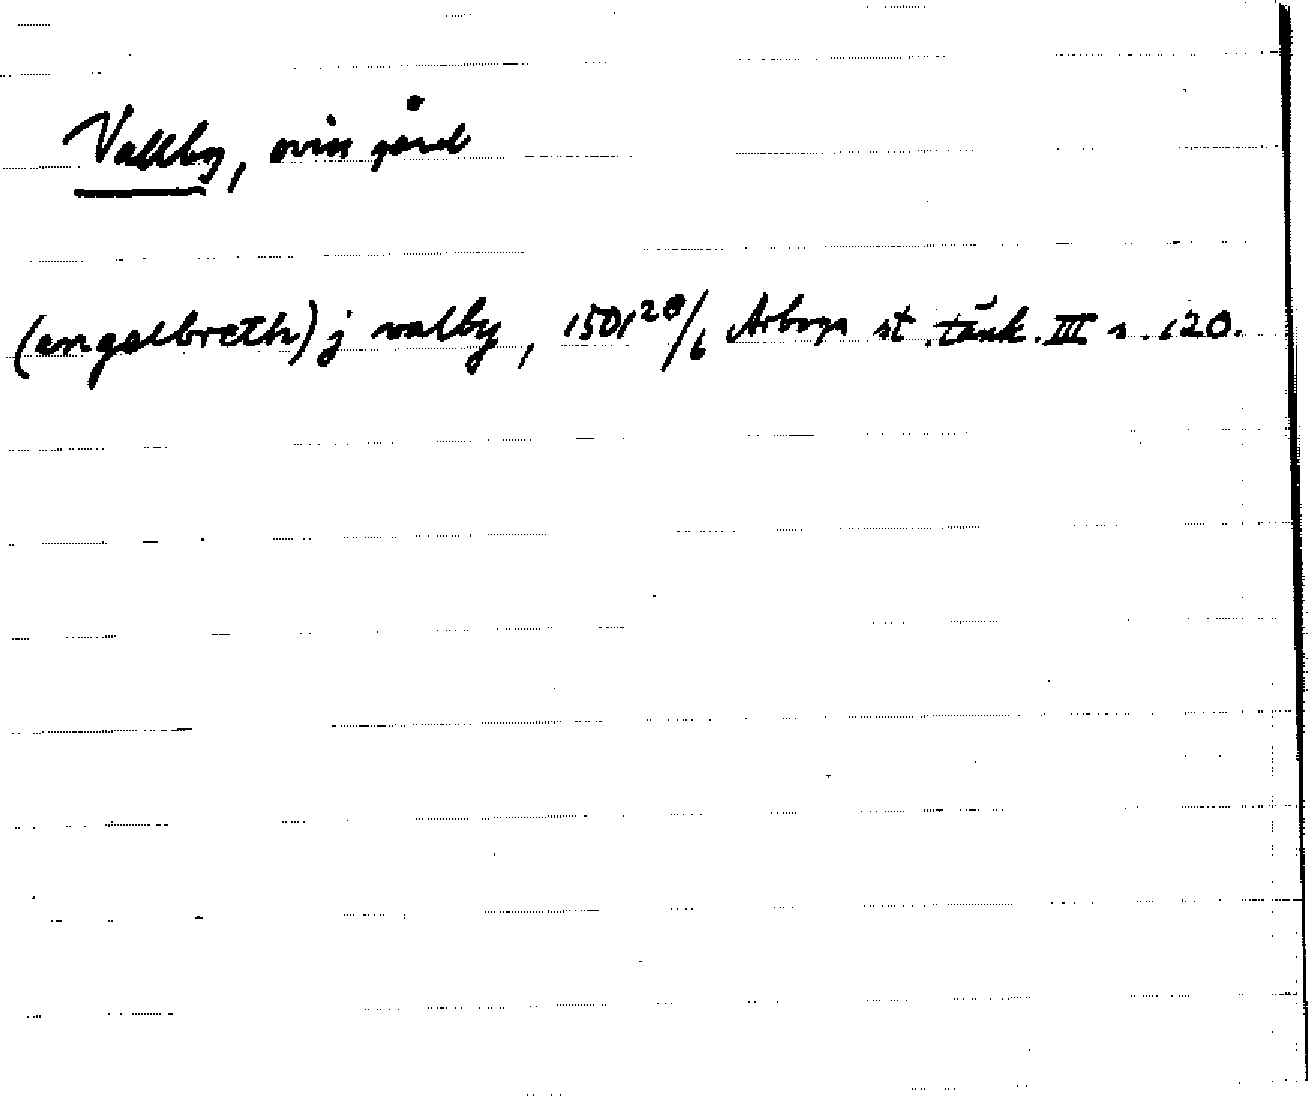 Vallby, oviss gård
(engelbreth) j valby, 1501 20/6 Arboga st. tänk. III s. 120.